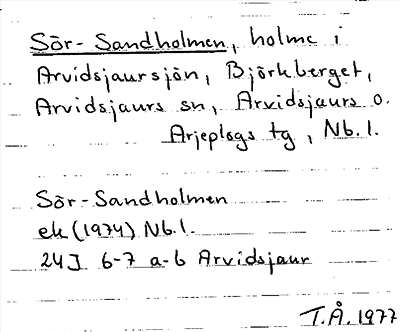 Sör-Sandholmen, holme i
Arvidsjaursjön, Björkberget,
Arvidsjaurs sn, Arvidsjaurs o.
Arjeplogs tg, Nb. l.
Sör-Sandholmen
ek (1974) Nb. l.
24J 6-7 a-b Arvidsjaur
T.Å. 1977